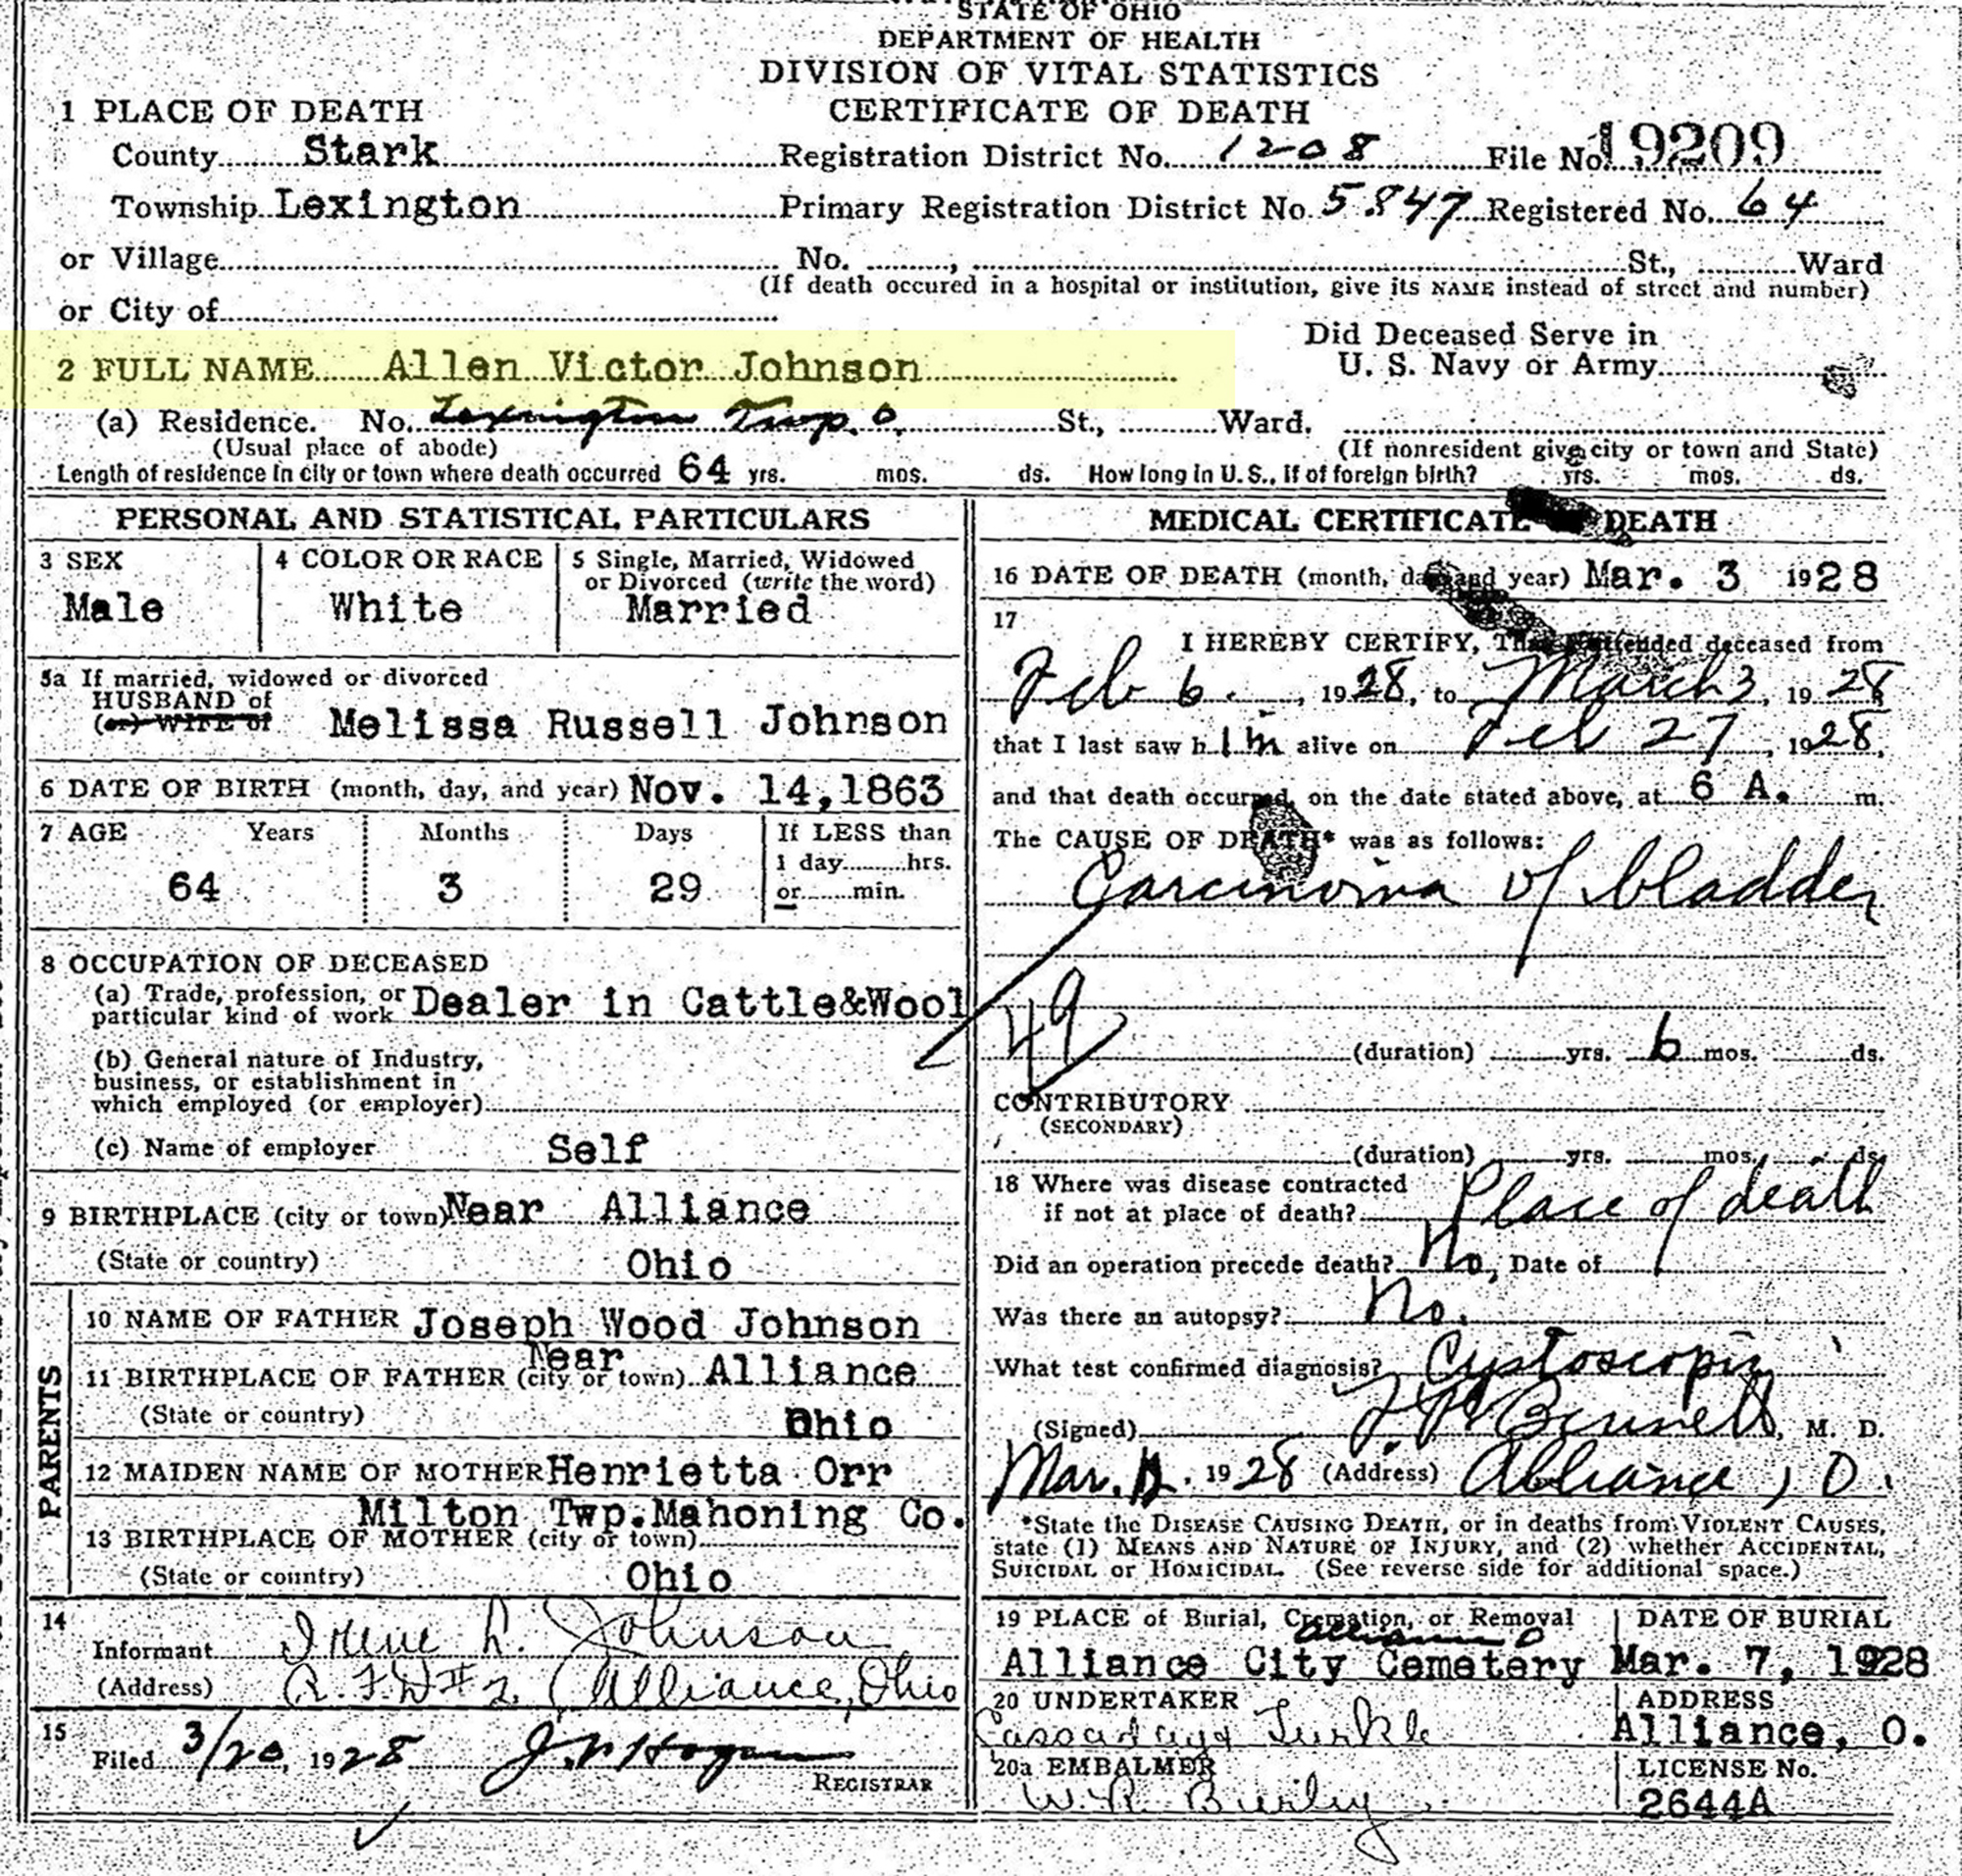 STATE OF OHIO
DEPARTMENT OF HEALTH
DIVISION OF VITAL STATISTICS
CERTIFICATE OF DEATH
1 PLACE OF DEATH
County Stark Registration District No. 1208 File No. 19209
Township Lexington Primary Registration District No. 5847 Registered No. 64
or Village No. , St., Ward
(If death occured in a hospital or institution, give its NAME instead of street and number)
or City of
Did Deceased Serve in
U. S. Navy or Army
2 FULL NAME Allen Victor Johnson
(a) Residence. No. Lexington Twp. O. St., Ward.
(Usual place of abode) (If nonresident give city or town and State)
Length of residence in city or town where death occurred 64 yrs. mos. ds. How long in U. S., if of foreign birth? yrs. mos. ds.
PERSONAL AND STATISTICAL PARTICULARS
3 SEX
Male
4 COLOR OR RACE
White
5 Single, Married, Widowed
or Divorced (write the word)
Married
5a If married, widowed or divorced
HUSBAND of
(or) WIFE of Melissa Russell Johnson
6 DATE OF BIRTH (month, day, and year) Nov. 14,1863
7 AGE Years Months Days If LESS than
1 day hrs.
64 3 29 or min.
8 OCCUPATION OF DECEASED
(a) Trade, profession, or
particular kind of work Dealer in Cattle&Wool
(b) General nature of Industry,
business, or establishment in
which employed (or employer)
(c) Name of employer Self
9 BIRTHPLACE (city or town) Near Alliance
(State or country) Ohio
PARENTS
10 NAME OF FATHER Joseph Wood Johnson
11 BIRTHPLACE OF FATHER (city or town) Near Alliance
(State or country) Ohio
12 MAIDEN NAME OF MOTHER Henrietta Orr
Milton Twp.Mahoning Co.
13 BIRTHPLACE OF MOTHER (city or town)
(State or country) Ohio
14
Informant Irene L. Johnson
(Address) R.F.D #2, Alliance, Ohio
15
Filed 3/20, 1928 Hogan
REGISTRAR
MEDICAL CERTIFICATE DEATH
16 DATE OF DEATH (month, day and year) Mar. 3 1928
17
I HEREBY CERTIFY, That attended deceased from
Feb 6, 1928, to March 3, 1928
that I last saw him alive on Feb 27, 1928,
and that death occurred, on the date stated above, at 6 A. m.
The CAUSE OF DEATH* was as follows:
Carcinoma of bladder
49
(duration) yrs. 6 mos. ds.
CONTRIBUTORY
(SECONDARY)
(duration) yrs. mos. ds.
18 Where was disease contracted
if not at place of death? Place of death
Did an operation precede death? No, Date of
Was there an autopsy? No.
What test confirmed diagnosis? Cystoscopic
(Signed) Bennett, M. D.
Mar. 1928 (Address) Alliance, O.
*State the DISEASE CAUSING DEATH, or in deaths from VIOLENT CAUSES,
state (1) MEANS AND NATURE OF INJURY, and (2) whether ACCIDENTAL,
SUICIDAL or HOMICIDAL. (See reverse side for additional space.)
19 PLACE of Burial, Cremation, or Removal
Alliance O
Alliance City Cemetery
DATE OF BURIAL
Mar. 7, 1928
20 UNDERTAKER
Cassaday Turkle
ADDRESS
Alliance, O.
20a EMBALMER
W. R.
LICENSE No.
2644A